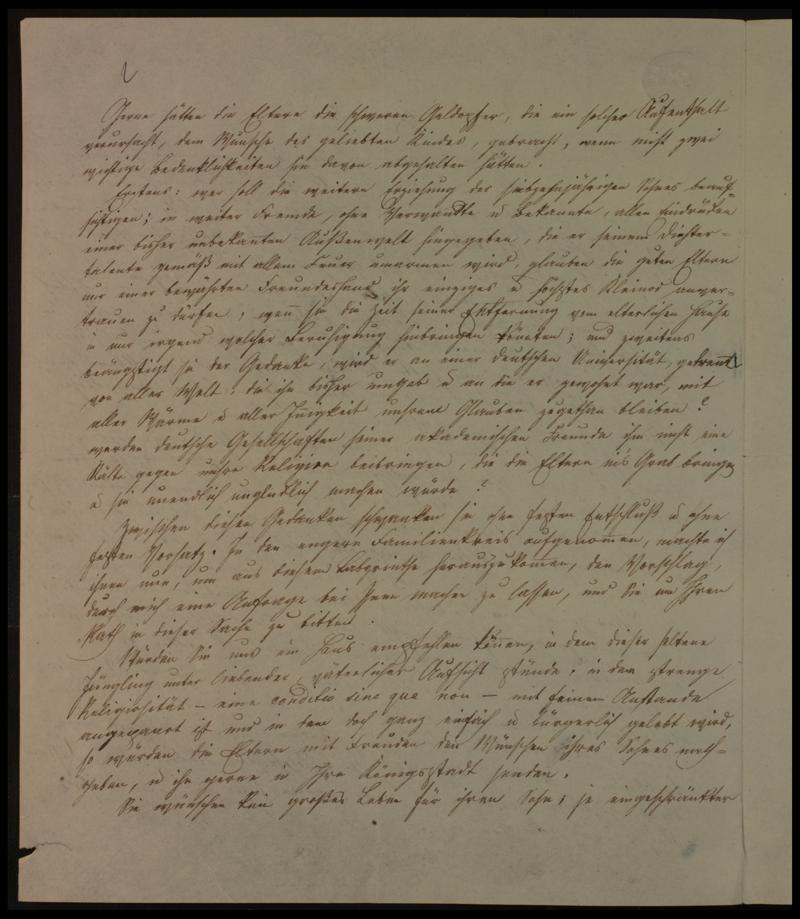 2
Gerne hätten die Eltern die schweren Geldopfer, die ein solcher Aufenthalt
verursacht, dem Wunsche des geliebten Kindes, gebracht, wenn nicht zwei
wichtige Bedenklichkeiten sie davon abgehalten hätten.
Erstens: wer soll die weitere Erziehung des siebzehnjährigen Sohnes beauf-
sichtigen; in weiter Fremde, ohne Verwandte u Bekannte, allen Eindrücken
einer bisher unbekannten Außenwelt hingegeben, die er seinem Dichter-
talente gemäß mit allem Feuer umarmen wird, glauben die guten Eltern
nur einer bewährten Freundeshand ihr einziges u höchstes Kleinod anver-
trauen zu dürfen, wenn sie die Zeit seiner Entfernung vom elterlichen Hause
in nur irgend welcher Beruhigung hinbringen könnten; und zweitens
beängstigt sie der Gedanke, wird er an einer deutschen Universität, getrennt
von aller Welt, die ihn bisher umgab u an die er gewohnt war, mit
aller Wärme u aller Innigkeit unsrem Glauben zugethan bleiben?
werden deutsche Gesellschaften seiner akademischen Freunde ihm nicht eine
Kälte gegen unsre Religion beibringen, die die Eltern in's Grab bringen
u sie unendlich unglücklich machen würde?
Zwischen diesen Gedanken schwanken sie ohne festen Entschluß u ohne
festen Vorsatz. In den engern Familienkreis aufgenommen, machte ich
ihnen nun, um aus diesem Labyrinthe herauszukommen, den Vorschlag,
durch mich eine Anfrage bei Ihnen machen zu lassen, und Sie um Ihren
Rath in dieser Sache zu bitten.
Würden Sie uns ein Haus empfehlen können, in dem dieser seltene
Jüngling unter liebender, väterlicher Aufsicht stünde, in dem strenge
Religiosität – eine conditio sine qua non – mit feinem Anstande
angepaart ist und in dem doch ganz einfach u bürgerlich gelebt wird,
so würden die Eltern mit Freuden den Wünschen ihres Sohnes nach-
geben, u ihn gerne in Ihre Königsstadt senden.
Sie wünschen kein großes Leben für ihren Sohn; je eingeschränkter